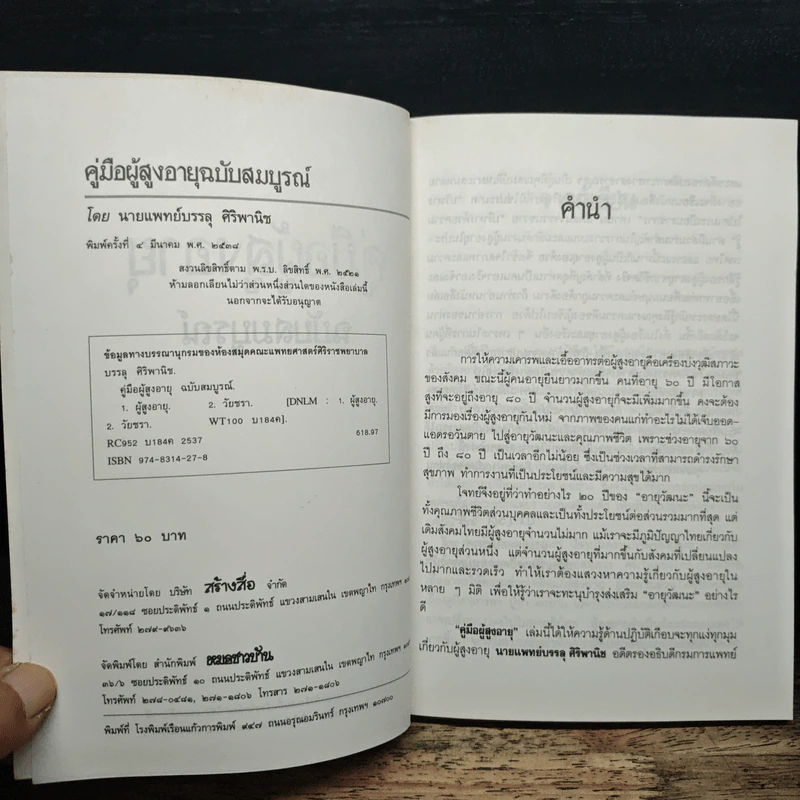 คู่มือผู้สูงอายุฉบับสมบูรณ์
โดย นายแพทย์บรรลุ ศิริพานิช
พิมพ์ครั้งที่ ๔ มีนาคม พ.ศ. ๒๕๓๘
สงวนลิขสิทธิ์ตาม พ.ร.บ. ลิขสิทธิ์ พ.ศ. ๒๕๒๑
ห้ามลอกเลียนไม่ว่าส่วนหนึ่งส่วนใดของหนังสือเล่มนี้
นอกจากจะได้รับอนุญาต
ข้อมูลทางบรรณานุกรมของห้องสมุดคณะแพทยศาสตร์ศิริราชพยาบาล
บรรลุ ศิริพานิช.
คู่มือผู้สูงอายุ ฉบับสมบูรณ์.
1. ผู้สูงอายุ. 2. วัยชรา. [DNLM : 1. ผู้สูงอายุ.
2. วัยชรา. WT100 บ184ค].
RC952 บ184ค 2537 618.97
ISBN 974-8314-27-8
ราคา ๖๐ บาท
จัดจำหน่ายโดย บริษัท สร้างสื่อ จำกัด
๑๗/๑๑๘ ซอยประดิพัทธ์ ๑ ถนนประดิพัทธ์ แขวงสามเสนใน เขตพญาไท กรุงเทพฯ
โทรศัพท์ ๒๗๙-๙๖๓๖
จัดพิมพ์โดย สำนักพิมพ์ หมอชาวบ้าน
๓๖/๖ ซอยประดิพัทธ์ ๑๐ ถนนประดิพัทธ์ แขวงสามเสนใน เขตพญาไท กรุงเทพฯ
โทรศัพท์ ๒๗๘-๐๔๘๑, ๒๗๑-๑๘๐๖ โทรสาร ๒๗๑-๑๘๐๖
พิมพ์ที่ โรงพิมพ์เรือนแก้วการพิมพ์ ๙๔๗ ถนนอรุณอมรินทร์ กรุงเทพฯ ๑๐๗๐๐
คำนำ
การให้ความเคารพและเอื้ออาทรต่อผู้สูงอายุคือเครื่องบ่งวุฒิสภาวะ
ของสังคม ขณะนี้ผู้คนอายุยืนยาวมากขึ้น คนที่อายุ ๖๐ ปี มีโอกาส
สูงที่จะอยู่ถึงอายุ ๘๐ ปี จำนวนผู้สูงอายุก็จะมีเพิ่มมากขึ้น คงจะต้อง
มีการมองเรื่องผู้สูงอายุกันใหม่ จากภาพของคนแก่ทำอะไรไม่ได้เจ็บออด-
แอดรอวันตาย ไปสู่อายุวัฒนะและคุณภาพชีวิต เพราะช่วงอายุจาก ๖๐
ปี ถึง ๘๐ ปี เป็นเวลาอีกไม่น้อย ซึ่งเป็นช่วงเวลาที่สามารถดำรงรักษา
สุขภาพ ทำการงานที่เป็นประโยชน์และมีความสุขได้มาก
โจทย์จึงอยู่ที่ว่าทำอย่างไร ๒๐ ปีของ “อายุวัฒนะ” นี้จะเป็น
ทั้งคุณภาพชีวิตส่วนบุคคลและเป็นทั้งประโยชน์ต่อส่วนรวมมากที่สุด แต่
เดิมสังคมไทยมีผู้สูงอายุจำนวนไม่มาก แม้เราจะมีภูมิปัญญาไทยเกี่ยวกับ
ผู้สูงอายุส่วนหนึ่ง แต่จำนวนผู้สูงอายุที่มากขึ้นกับสังคมที่เปลี่ยนแปลง
ไปมากและรวดเร็ว ทำให้เราต้องแสวงหาความรู้เกี่ยวกับผู้สูงอายุใน
หลาย ๆ มิติ เพื่อให้รู้ว่าเราจะทะนุบำรุงส่งเสริม “อายุวัฒนะ” อย่างไร
ดี
“คู่มือผู้สูงอายุ” เล่มนี้ได้ให้ความรู้ด้านปฏิบัติเกือบจะทุกแง่ทุกมุม
เกี่ยวกับผู้สูงอายุ นายแพทย์บรรลุ ศิริพานิช อดีตรองอธิบดีกรมการแพทย์